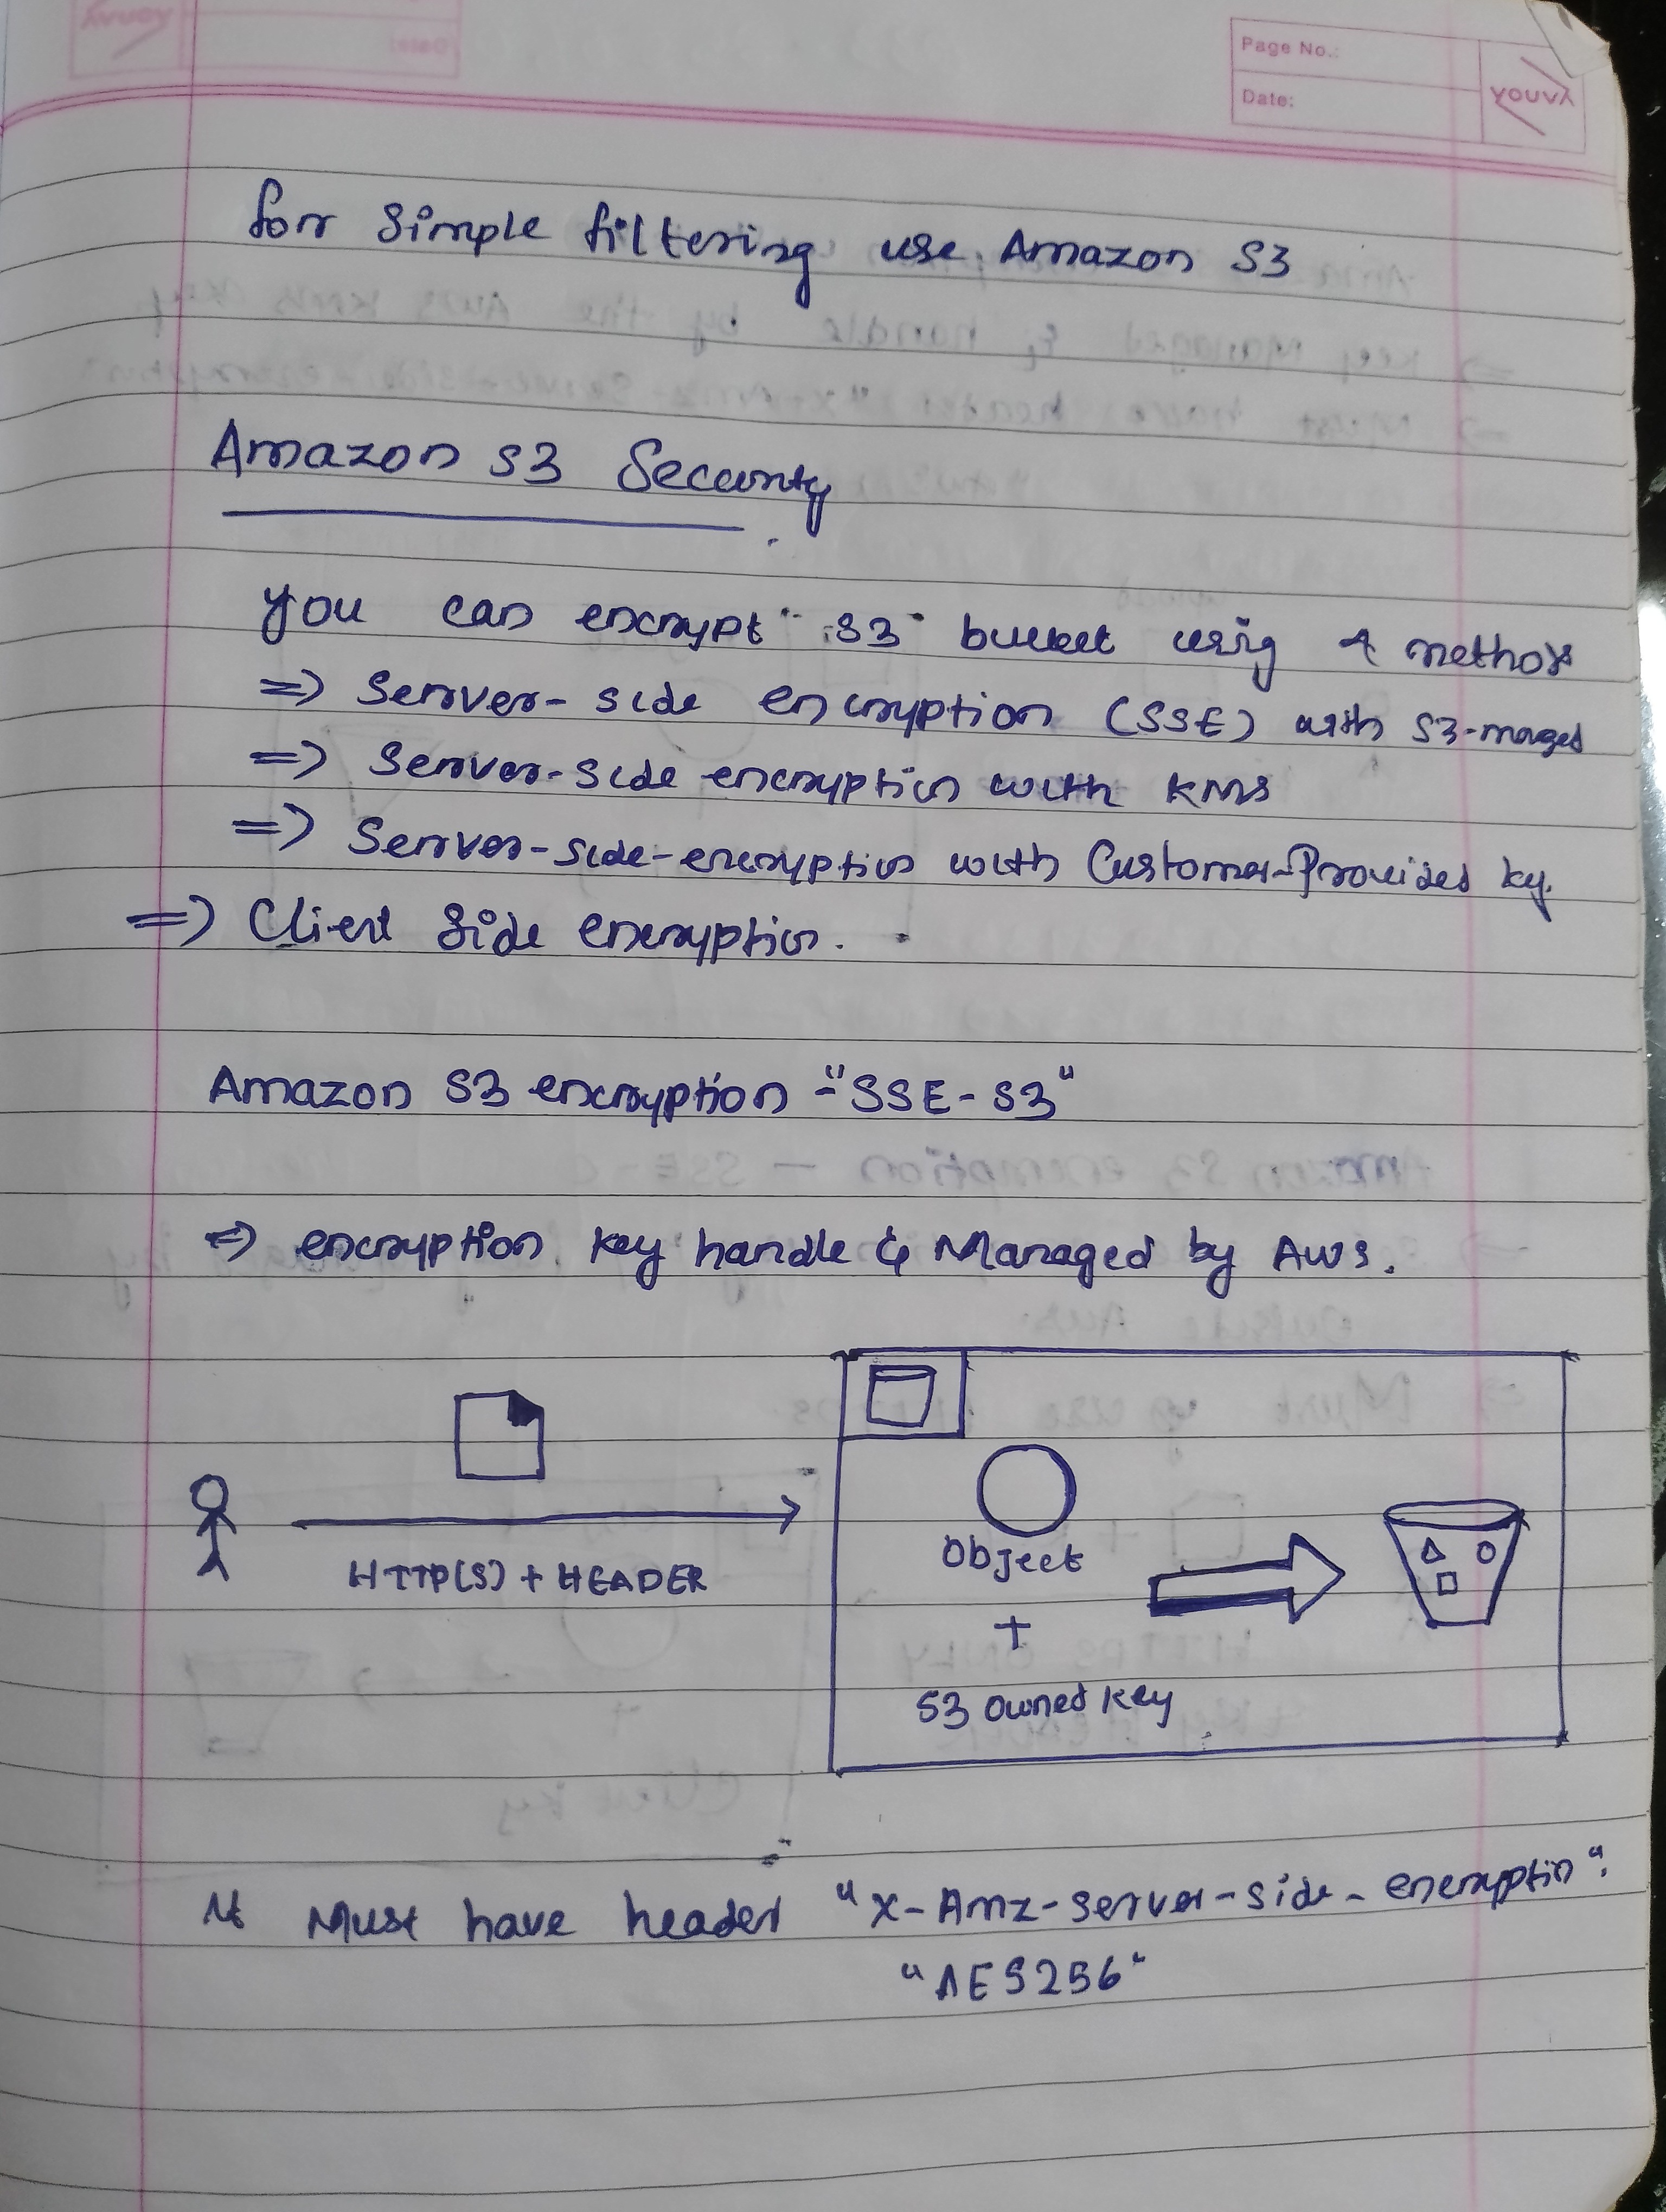 Page No.:
Date:
YOUVA
for Simple filtering use Amazon S3
Amazon S3 Security
you can encrypt S3 bucket using 4 methods
=> Server-side encryption (SSE) with S3-manged
=> Server-side encryption with KMS
=> Server-side-encryption with Customer-Provided ky.
=> Client Side encryption.
Amazon S3 encryption - "SSE-S3"
=> encryption key handle & Managed by AWS.
HTTP(S) + HEADER
Object
+
S3 owned key
Must have header "x-Amz-server-side-encryption":
"AES256"